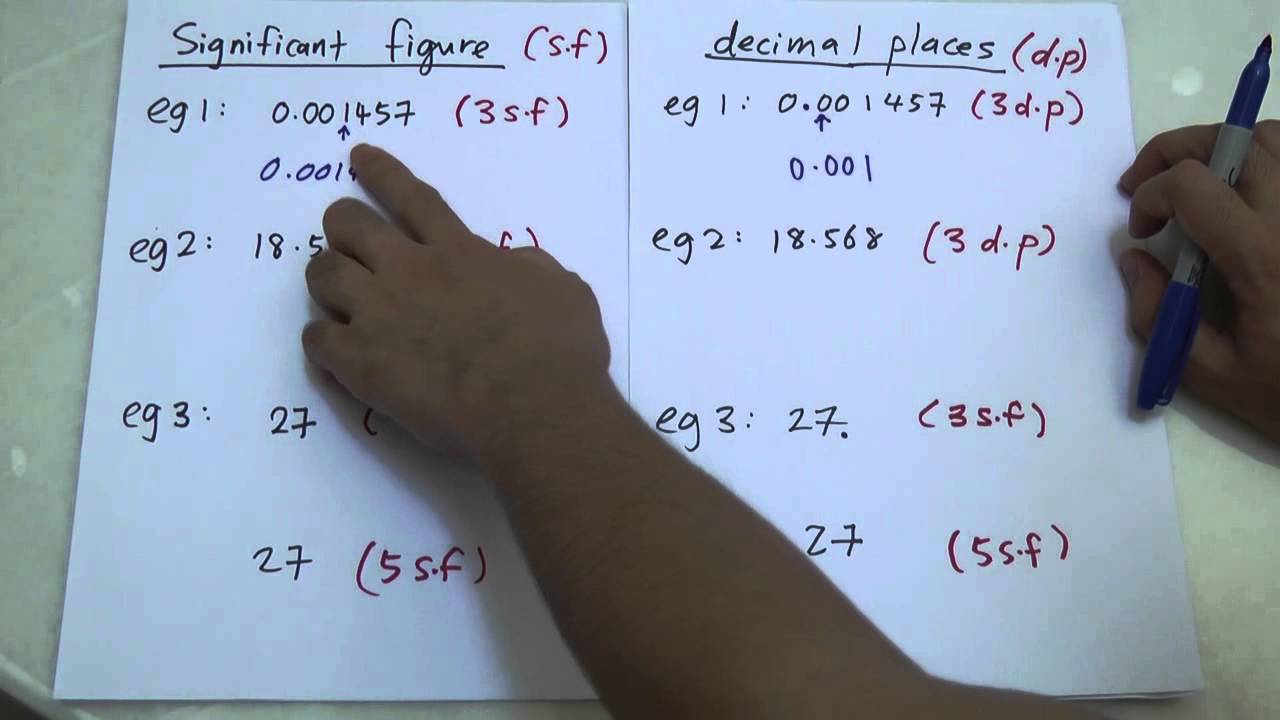 Significant figure (s.f)
eg 1: 0.001457 (3 s.f)
0.001
eg 2: 18.5
eg 3: 27 (
27 (5 s.f)
decimal places (d.p)
eg 1: 0.001457 (3 d.p)
0.001
eg 2: 18.568 (3 d.p)
eg 3: 27. (3 s.f)
27 (5 s.f)